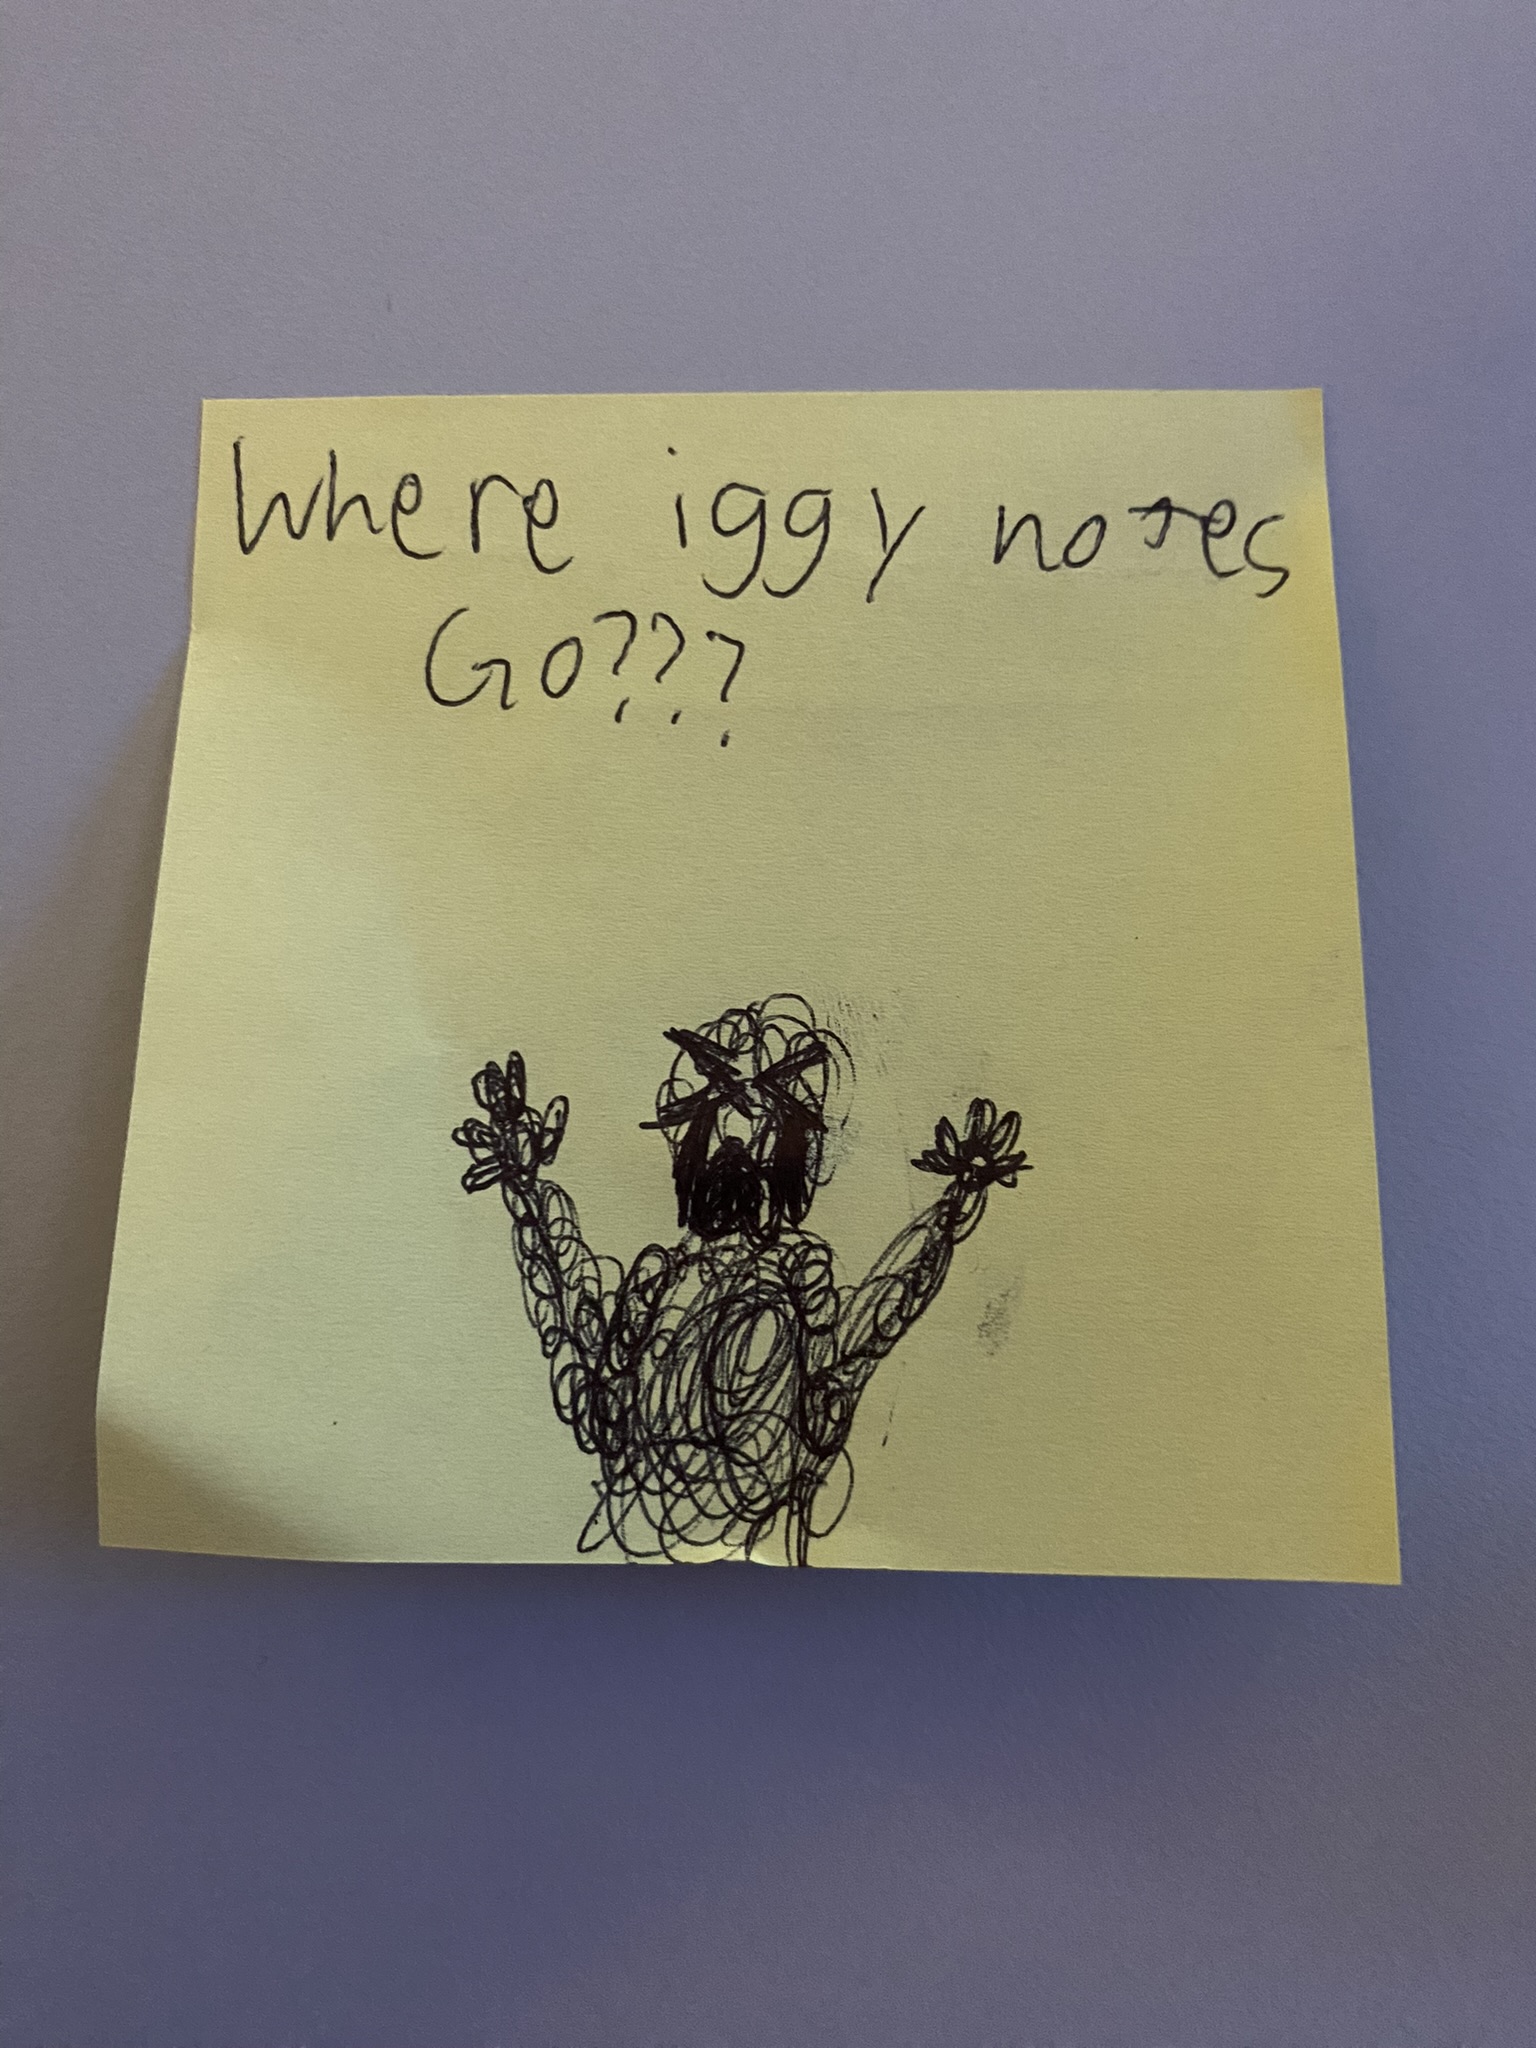 Where iggy notes
Go???